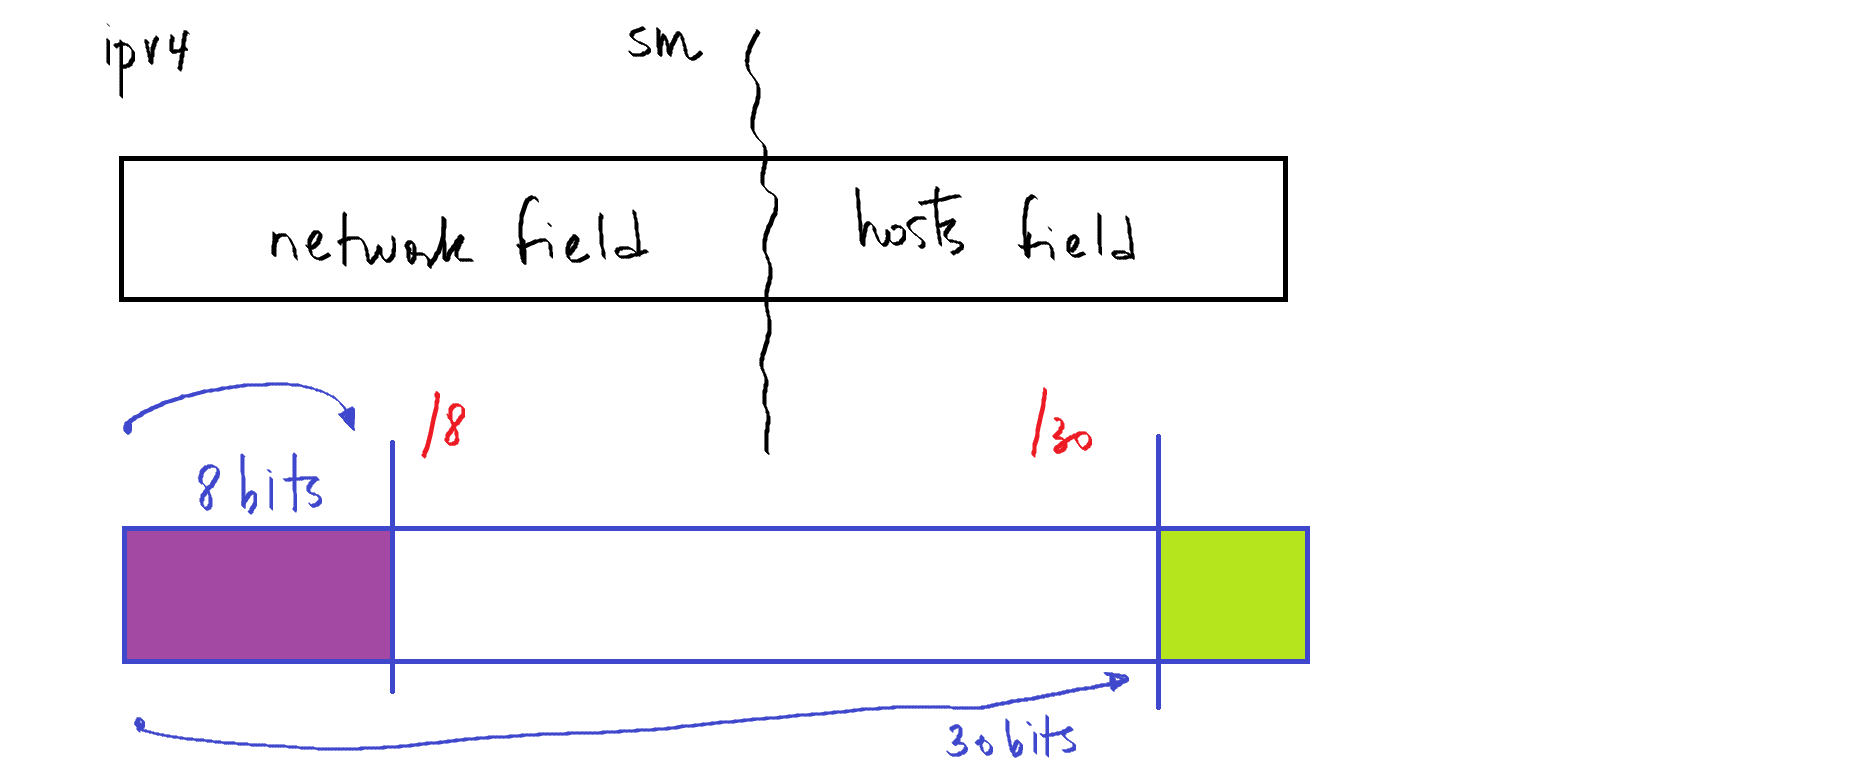 ipv4 sm
network field hosts field
/8 /30
8 bits
30 bits